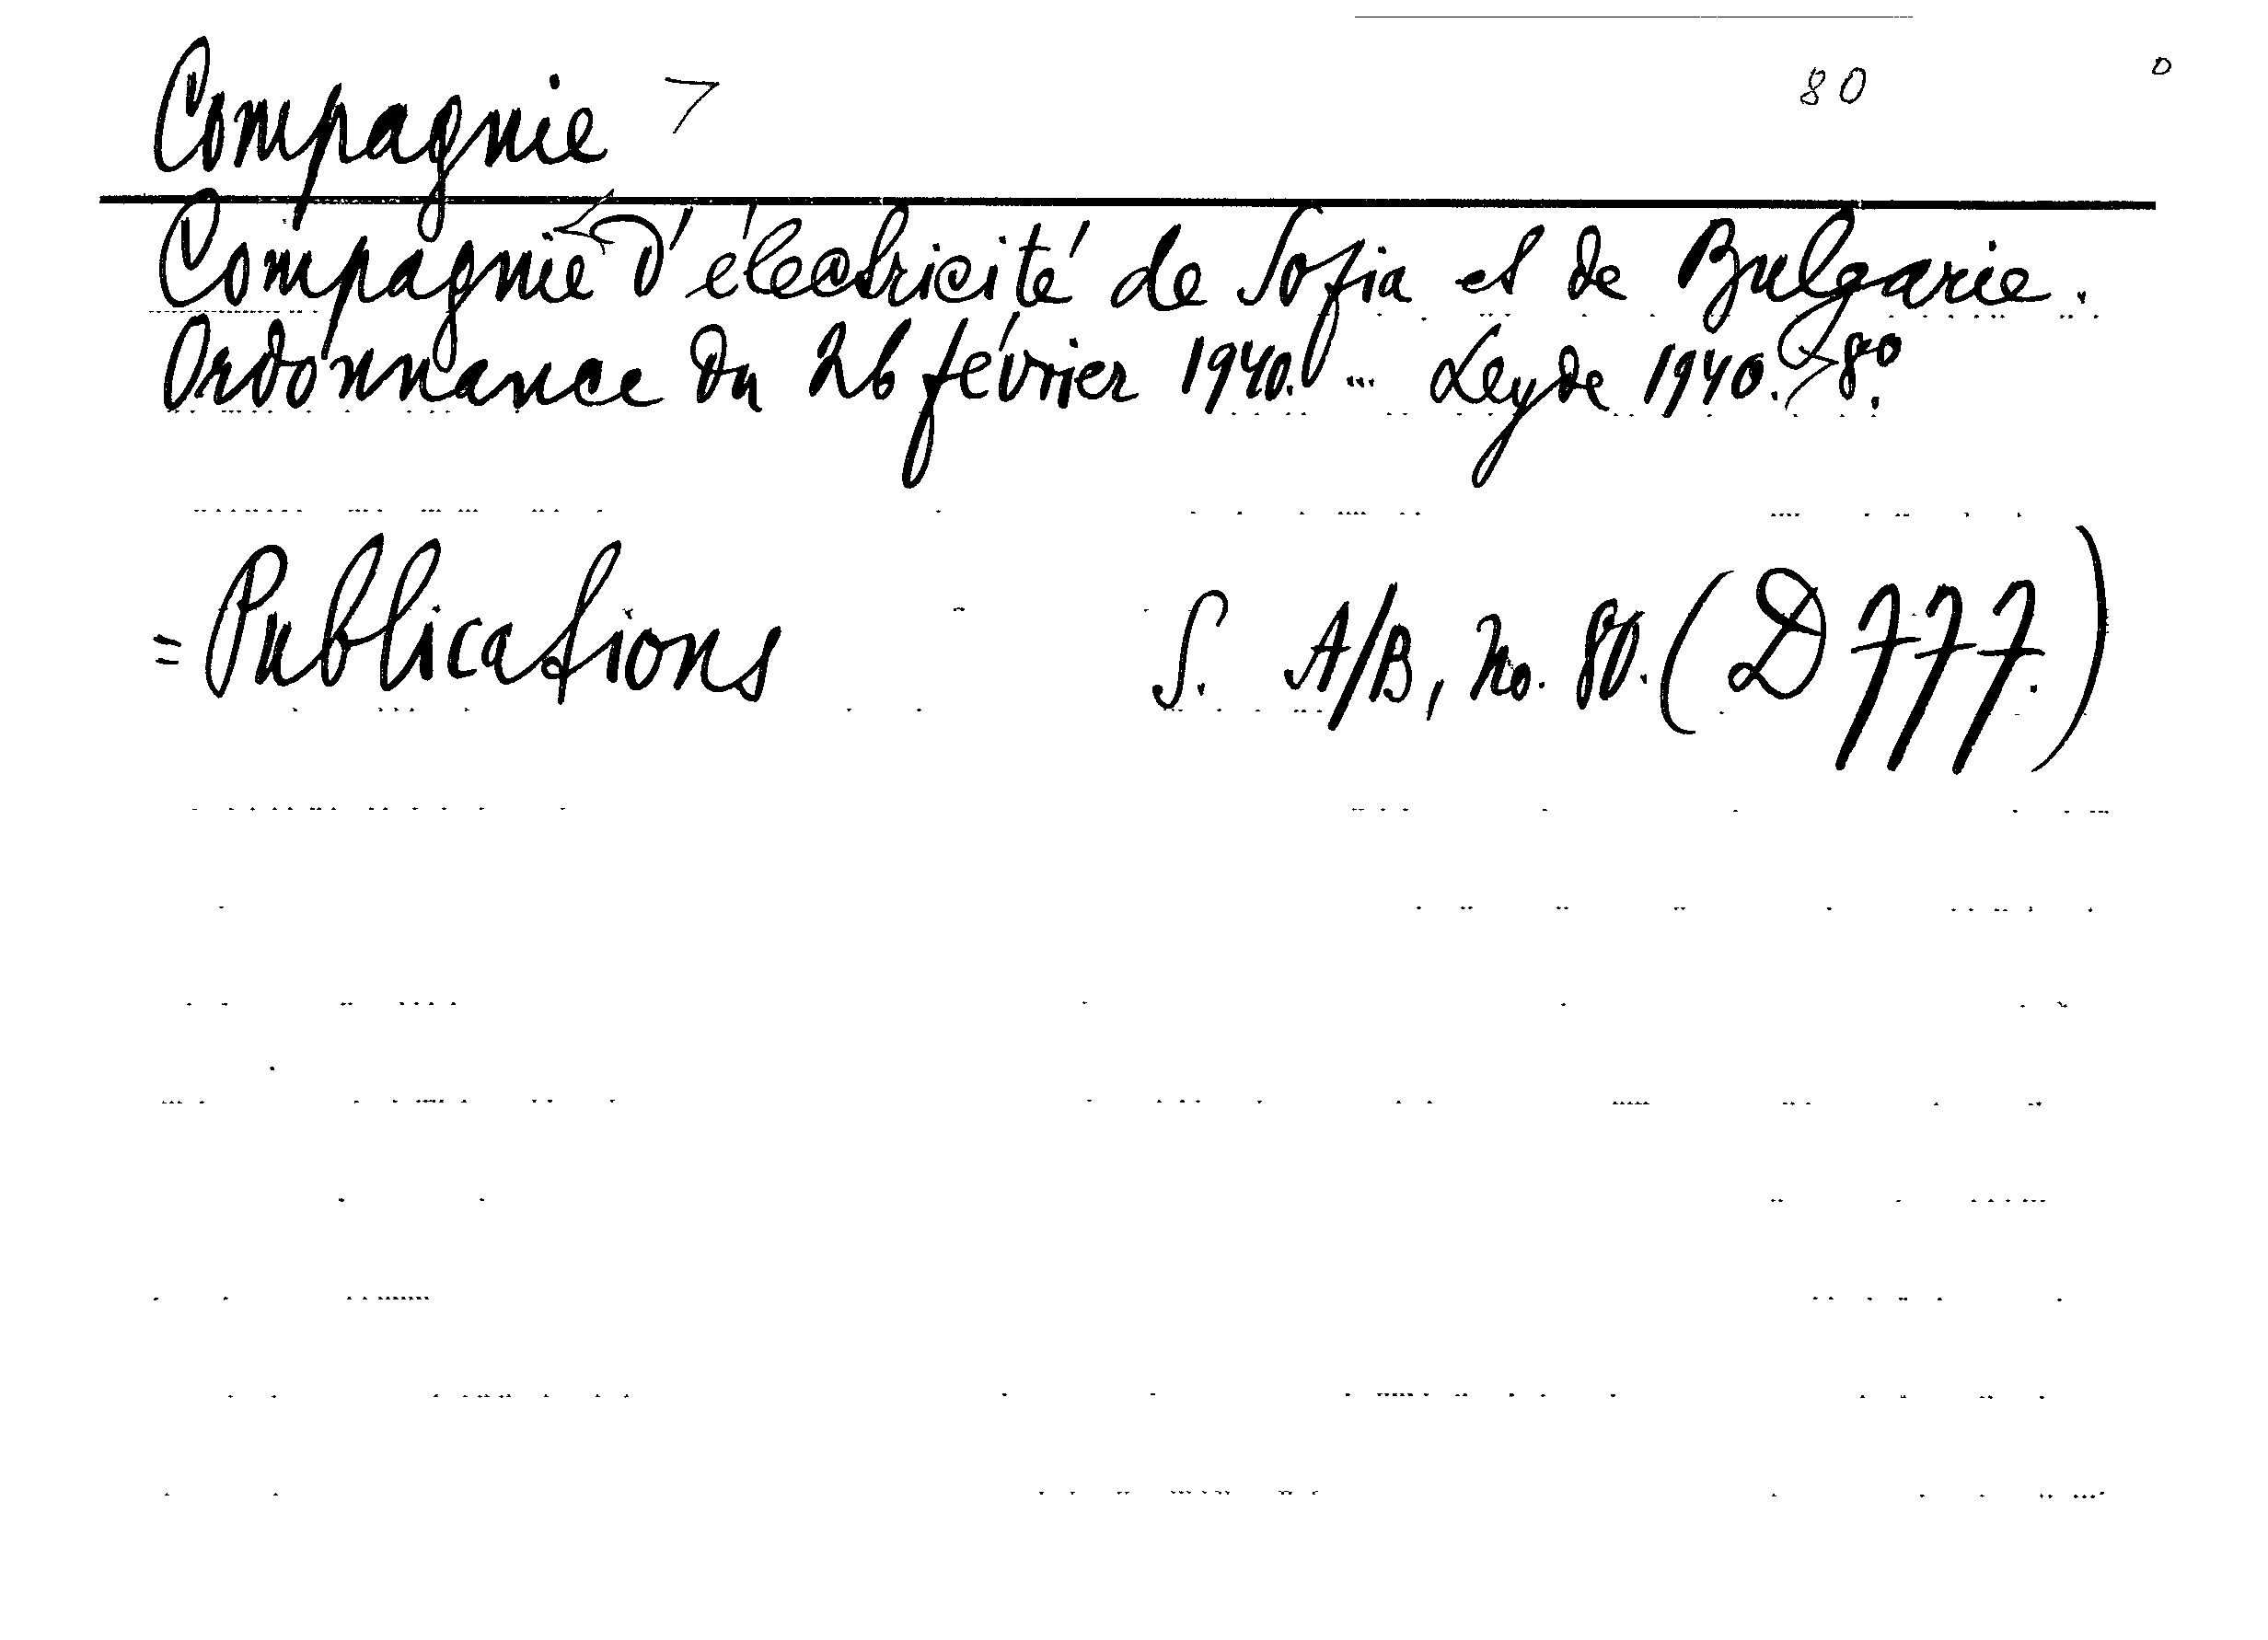 Compagnie 80 0
Compagnie d'électricité de Sofia et de Bulgarie.
Ordonnance du 26 février 1940. ... Leyde 1940. 8º.
= Publications S. A/B, No. 80. (D 777.)